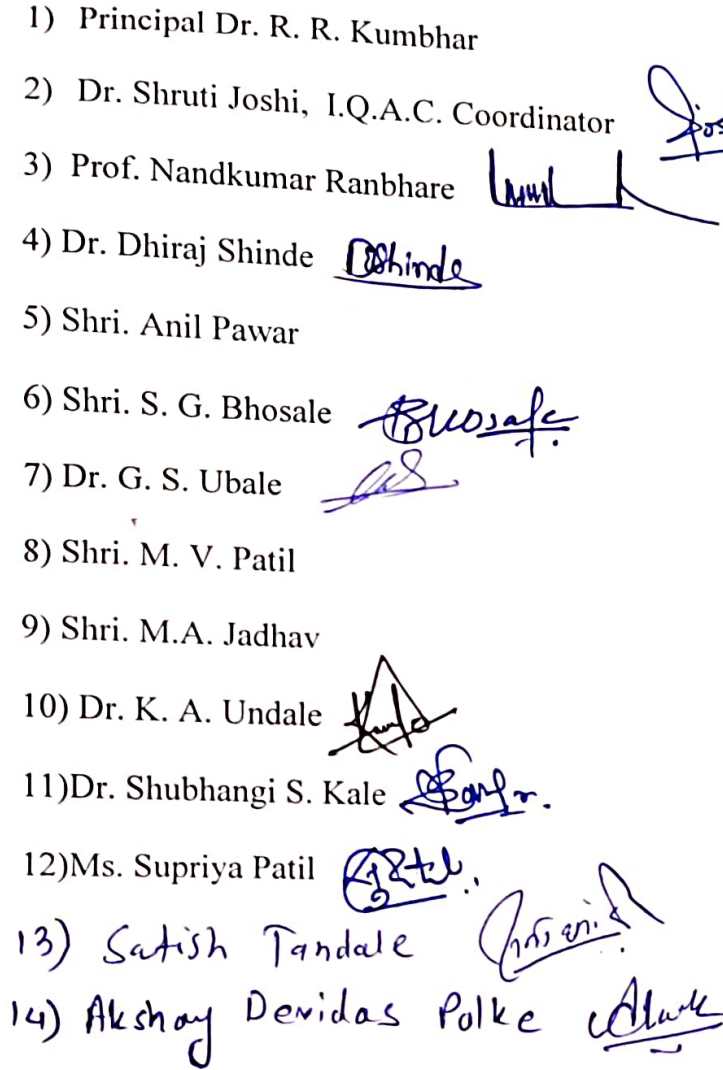 1) Principal Dr. R. R. Kumbhar
2) Dr. Shruti Joshi, I.Q.A.C. Coordinator
3) Prof. Nandkumar Ranbhare
4) Dr. Dhiraj Shinde DShinde
5) Shri. Anil Pawar
6) Shri. S. G. Bhosale Bhosale
7) Dr. G. S. Ubale
8) Shri. M. V. Patil
9) Shri. M.A. Jadhav
10) Dr. K. A. Undale
11)Dr. Shubhangi S. Kale
12)Ms. Supriya Patil
13) Satish Tandale
14) Akshay Devidas Polke